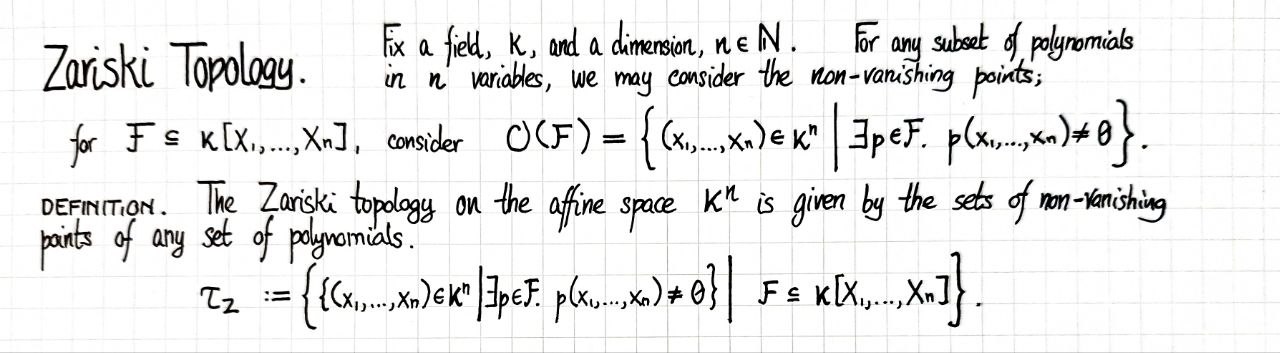 Zariski Topology. Fix a field, K, and a dimension, n ∈ ℕ. For any subset of polynomials
in n variables, we may consider the non-vanishing points;
for F ⊆ K[X₁,...,Xₙ], consider O(F) = {(x₁,...,xₙ) ∈ Kⁿ | ∃p∈F. p(x₁,...,xₙ) ≠ 0}.
DEFINITION. The Zariski topology on the affine space Kⁿ is given by the sets of non-vanishing
points of any set of polynomials.
τ_Z := {{(x₁,...,xₙ) ∈ Kⁿ | ∃p∈F. p(x₁,...,xₙ) ≠ 0} | F ⊆ K[X₁,...,Xₙ]}.